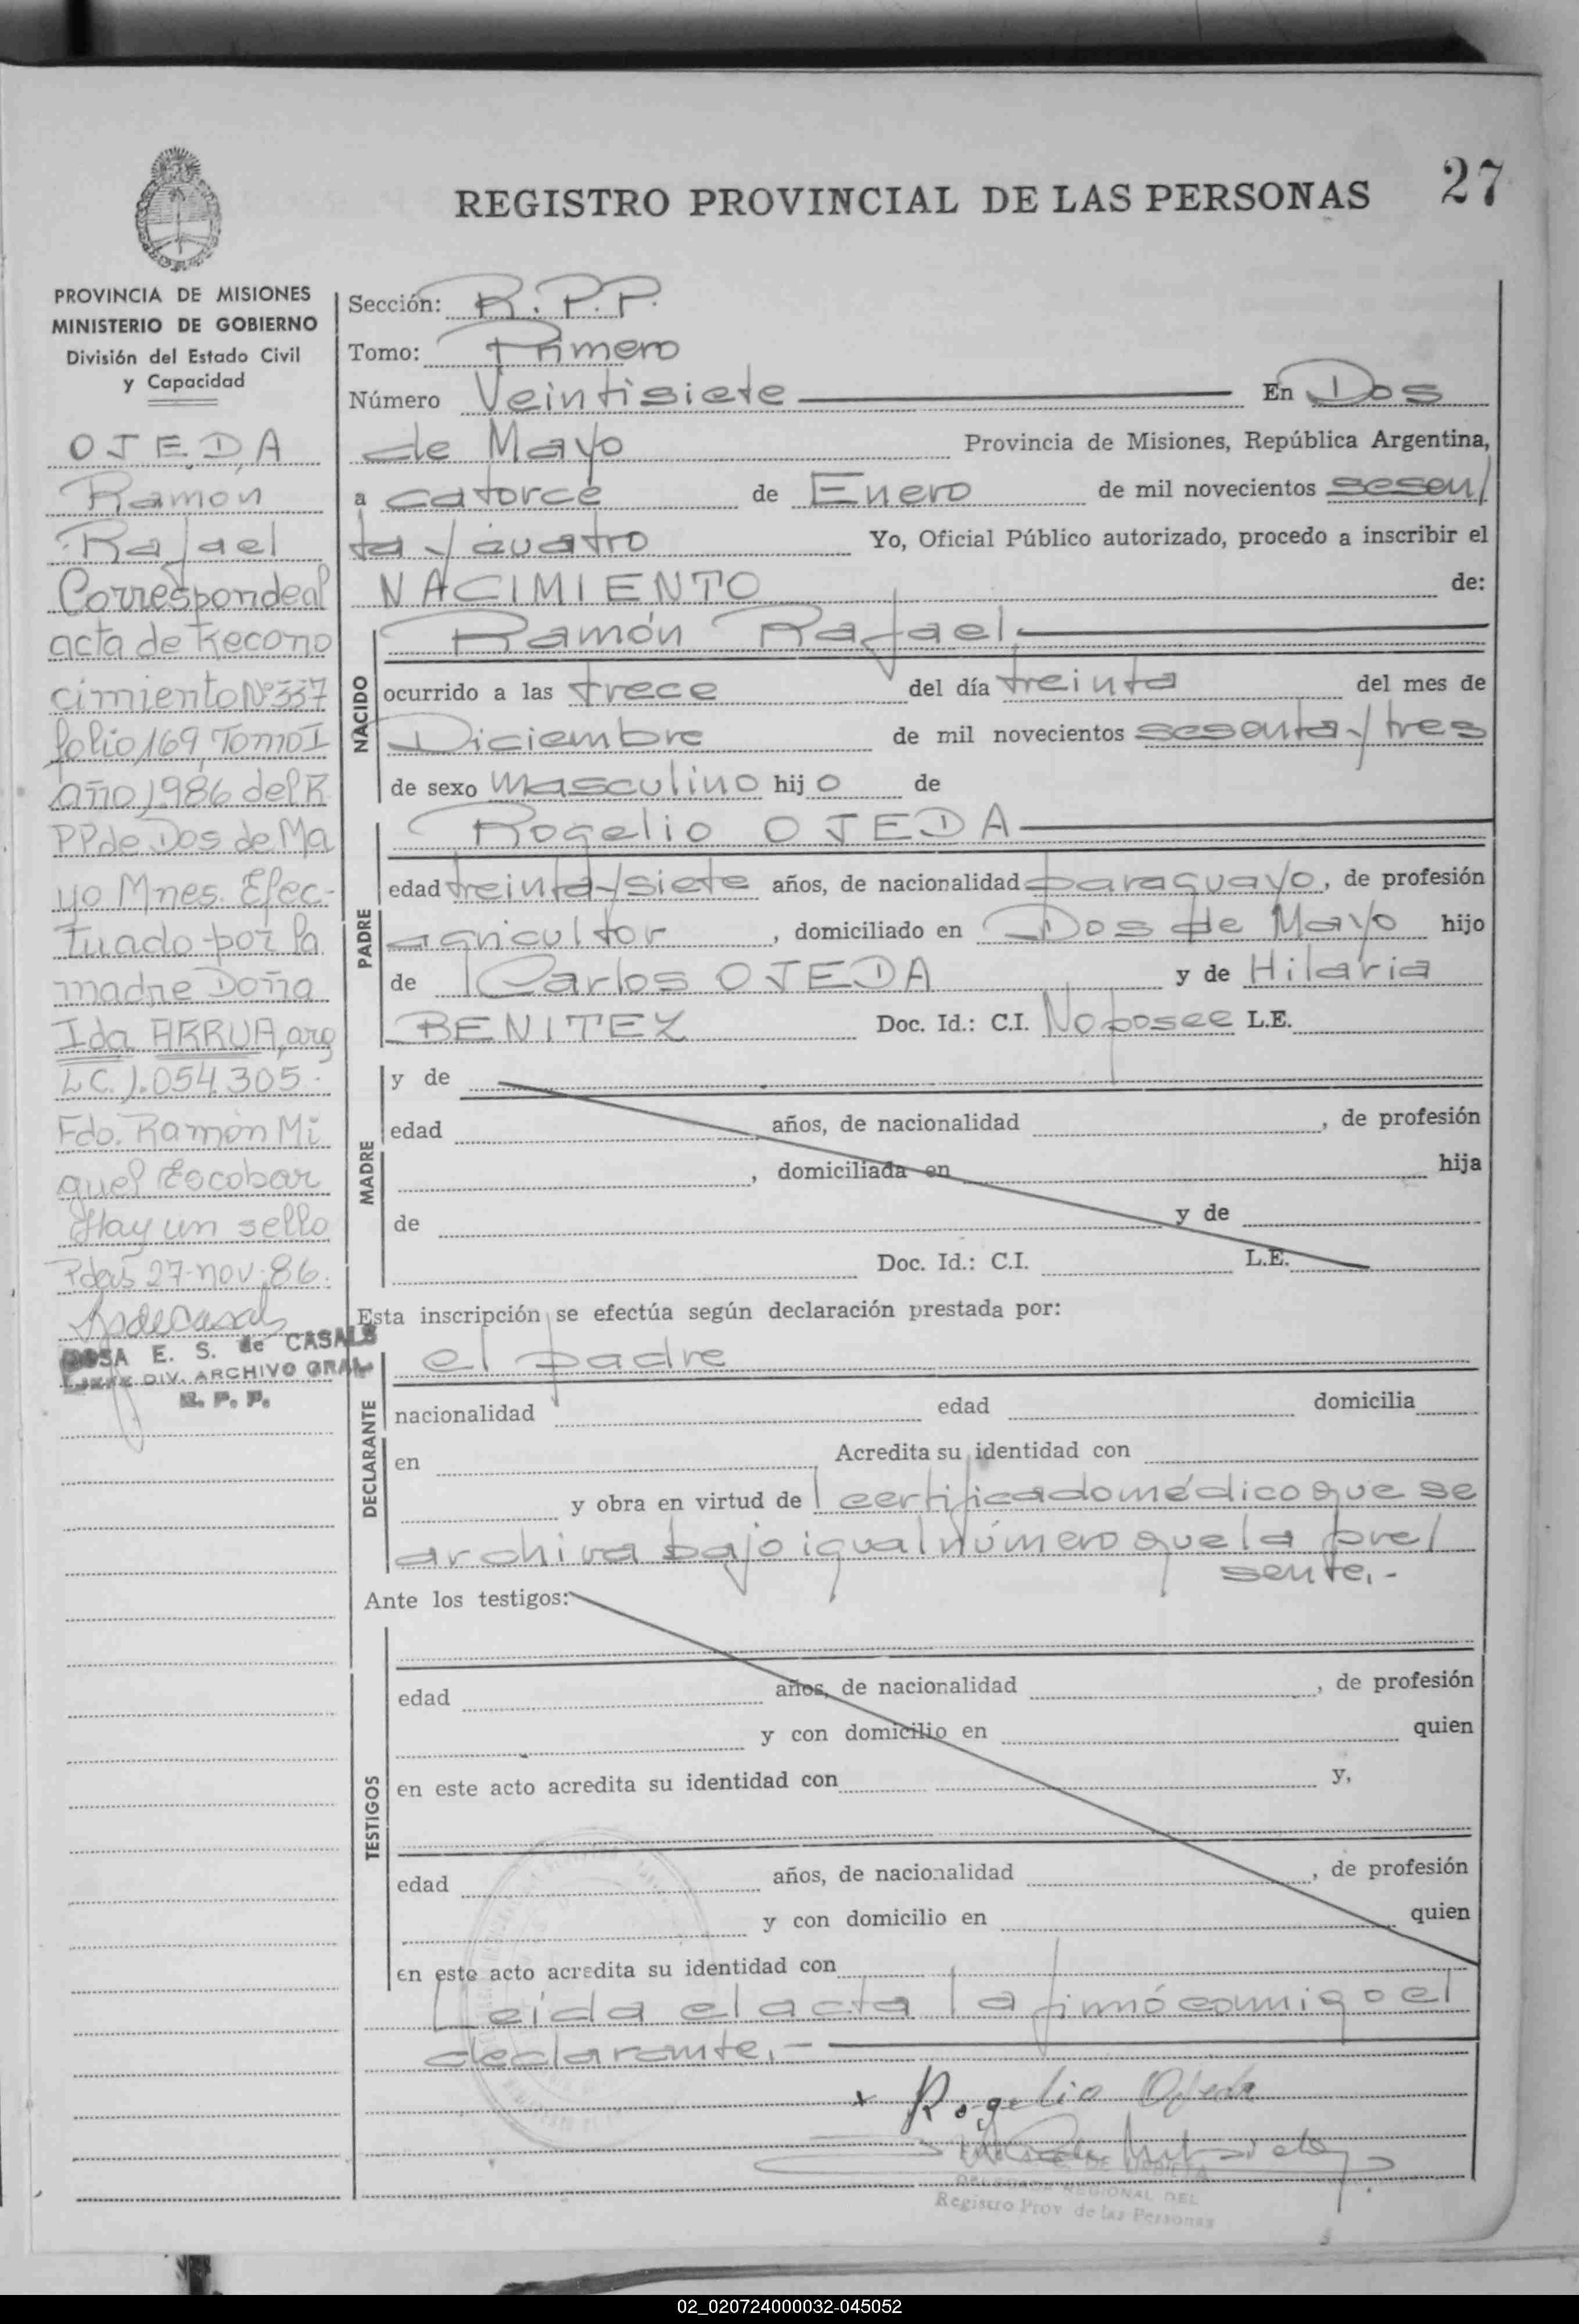 REGISTRO PROVINCIAL DE LAS PERSONAS 27
PROVINCIA DE MISIONES
MINISTERIO DE GOBIERNO
División del Estado Civil
y Capacidad
OJEDA
Ramón
Rafael
Corresponde al
acta de Recono
cimiento Nº 337
folio 169, Tomo I
año 1986 del R
PP de Dos de Ma
yo Mnes. Efec-
tuado por la
madre Doña
Ida ARRUA, arg
L.C. 1.054.305.-
Fdo. Ramón Mi
guel Escobar
Hay un sello
Pdas 27-nov-86.
ROSA E. S. de CASALS
DIV. ARCHIVO GRAL
R. P. P.
Sección: R.P.P.
Tomo: Primero
Número Veintisiete En Dos
de Mayo Provincia de Misiones, República Argentina,
a catorce de Enero de mil novecientos sesen/
ta y cuatro Yo, Oficial Público autorizado, procedo a inscribir el
NACIMIENTO de:
NACIDO
Ramón Rafael
ocurrido a las trece del día treinta del mes de
Diciembre de mil novecientos sesenta y tres
de sexo masculino hijo de
PADRE
Rogelio OJEDA
edad treinta y siete años, de nacionalidad paraguayo, de profesión
agricultor, domiciliado en Dos de Mayo hijo
de Carlos OJEDA y de Hilaria
BENITEZ Doc. Id.: C.I. No posee L.E.
MADRE
y de
edad años, de nacionalidad , de profesión
, domiciliada en hija
de y de
Doc. Id.: C.I. L.E.
Esta inscripción se efectúa según declaración prestada por:
DECLARANTE
el padre
nacionalidad edad domicilia
en Acredita su identidad con
y obra en virtud de certificado médico que se
archiva bajo igual número que la pre/
sente.-
Ante los testigos:
TESTIGOS
edad años, de nacionalidad , de profesión
y con domicilio en quien
en este acto acredita su identidad con y,
edad años, de nacionalidad , de profesión
y con domicilio en quien
en este acto acredita su identidad con
Leída el acta la firmó conmigo el
declarante.-
x Rogelio Ojeda
DELEGADA REGIONAL DEL
Registro Prov. de las Personas
02_020724000032-045052